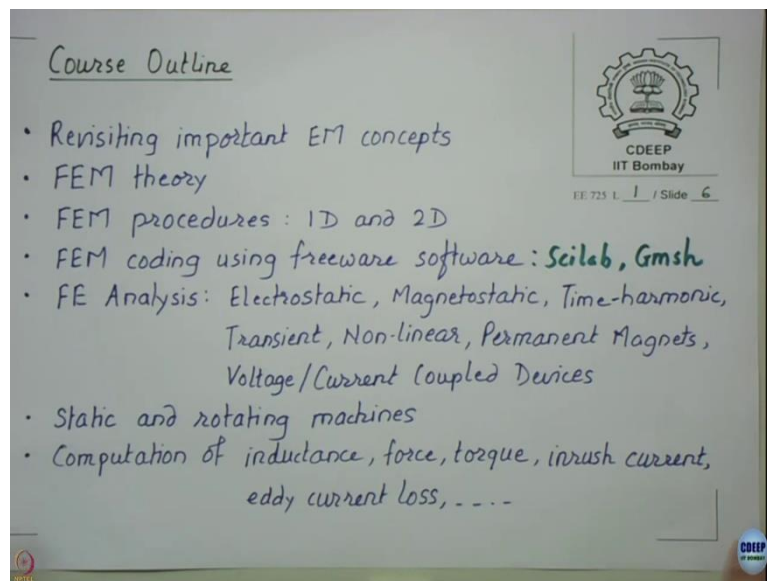 Course Outline
CDEEP
IIT Bombay
EE 725 L 1 / Slide 6
• Revisiting important EM concepts
• FEM theory
• FEM procedures : 1D and 2D
• FEM coding using freeware software : Scilab, Gmsh
• FE Analysis : Electrostatic, Magnetostatic, Time-harmonic,
Transient, Non-linear, Permanent Magnets,
Voltage/Current Coupled Devices
• Static and rotating machines
• Computation of inductance, force, torque, inrush current,
eddy current loss, ----
NPTEL
CDEEP
IIT BOMBAY